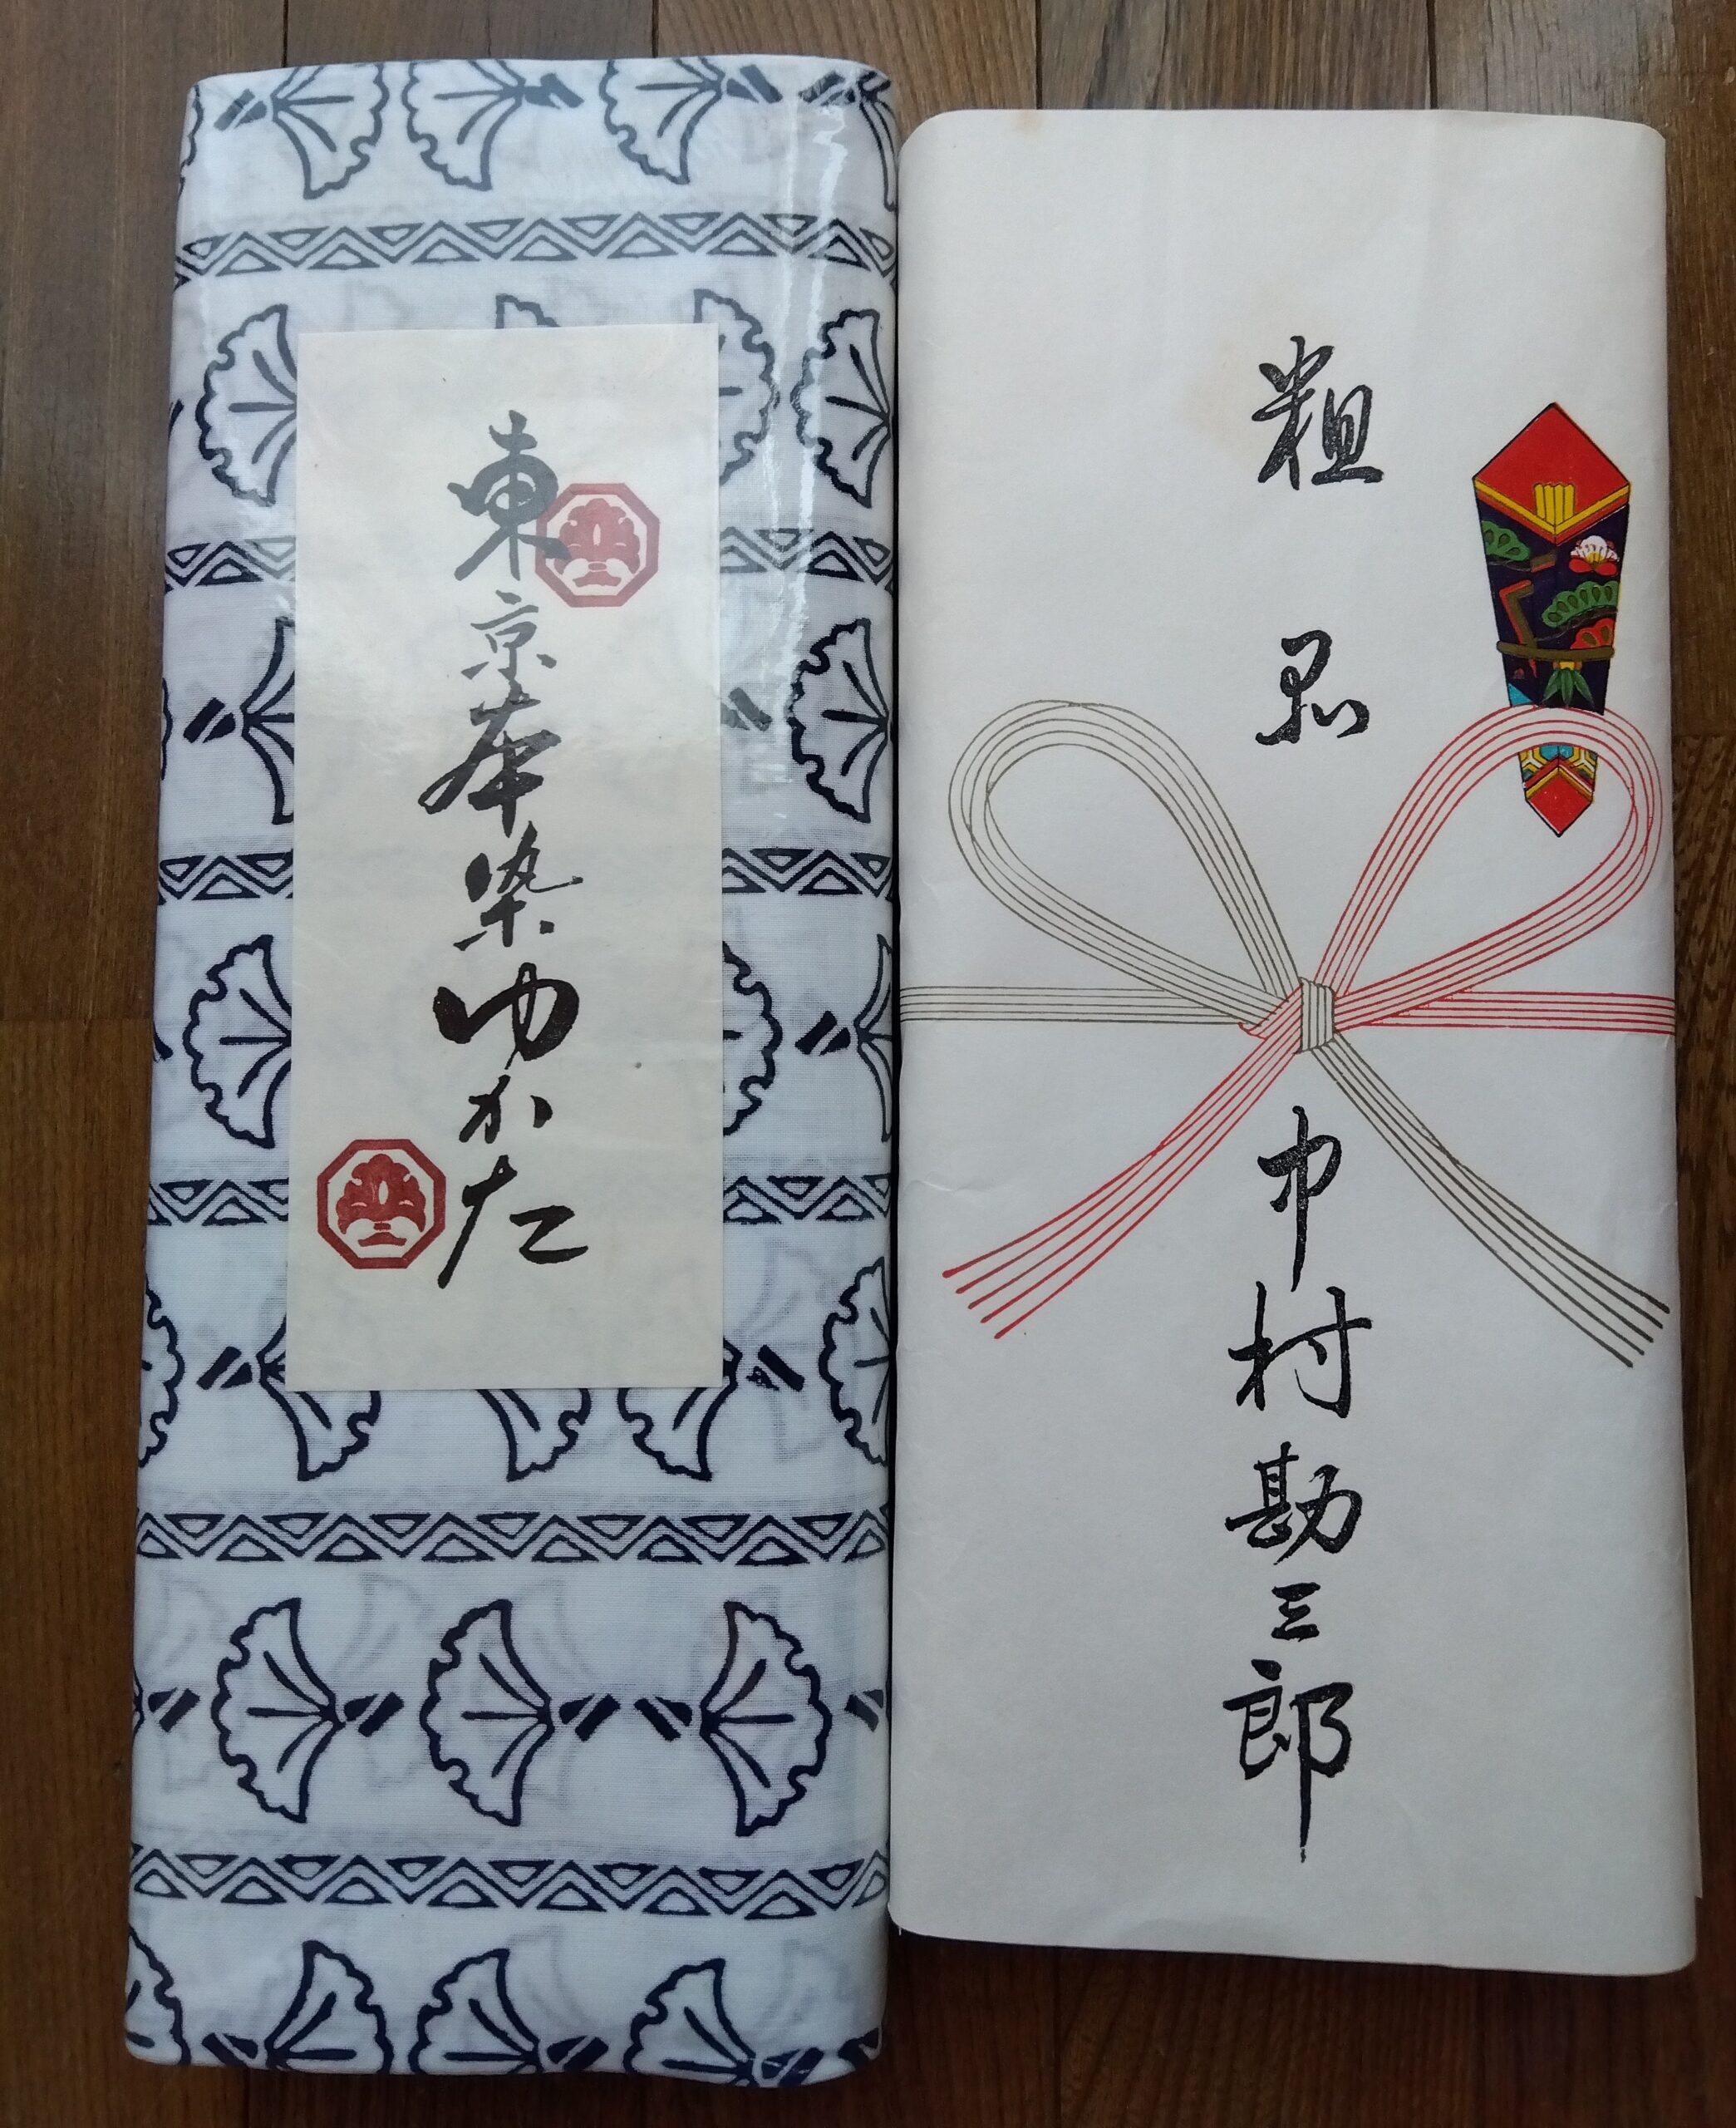 東京本染ゆかた
粗品
中村勘三郎